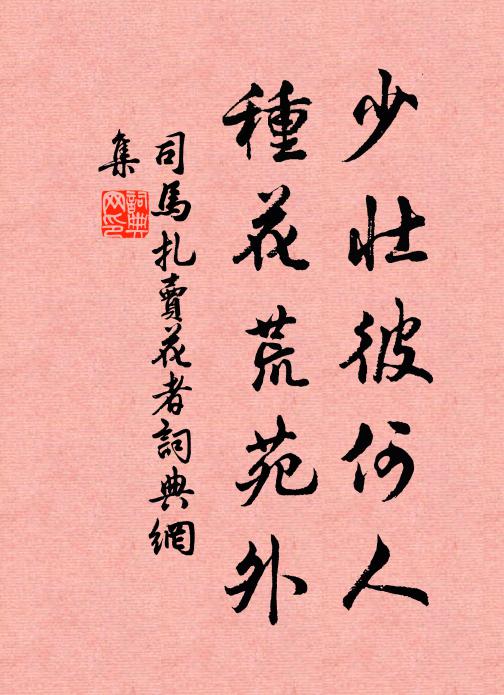 少壯彼何人
種花荒苑外
司馬扎賣花者詞典網
集
詞典
网印